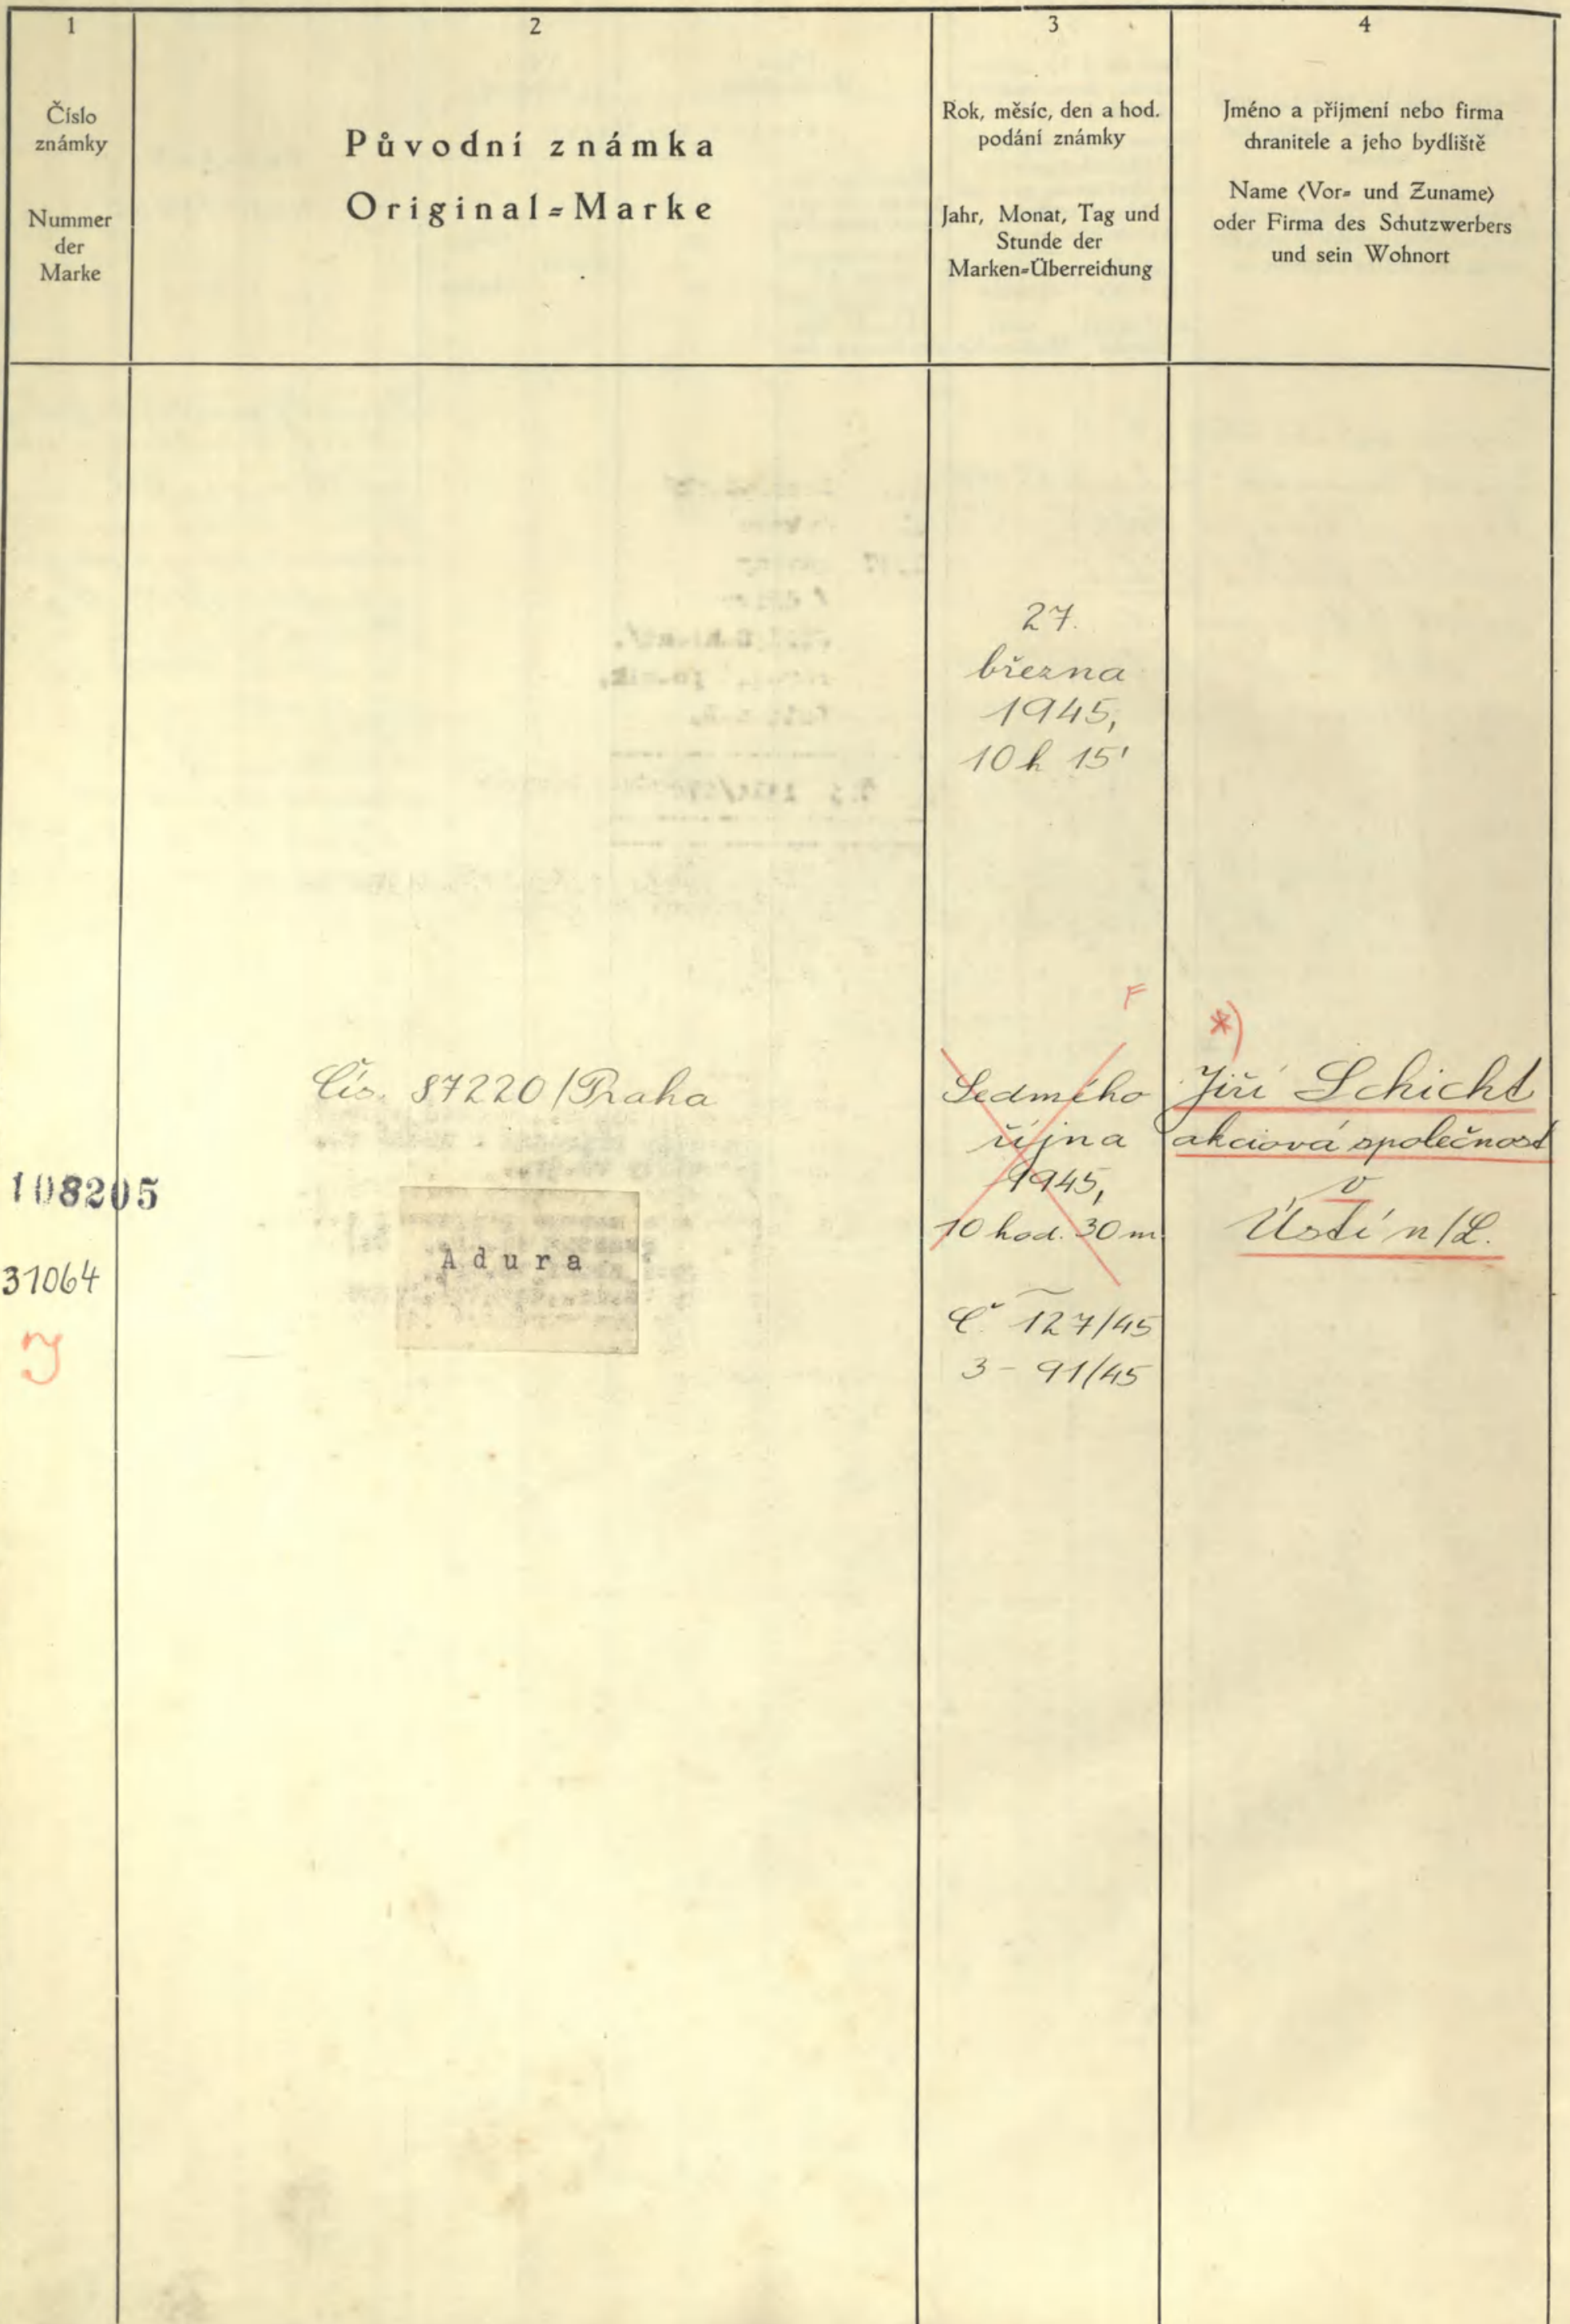 1
Číslo
známky
Nummer
der
Marke
2
Původní známka
Original=Marke
3
Rok, měsíc, den a hod.
podání známky
Jahr, Monat, Tag und
Stunde der
Marken=Überreichung
4
Jméno a příjmení nebo firma
chranitele a jeho bydliště
Name (Vor= und Zuname)
oder Firma des Schutzwerbers
und sein Wohnort
27.
března
1945,
10 h 15'
108205
31064
Čís. 87220/Praha
Adura
F
Sedmého
října
1945,
10 hod. 30 m
Č 127/45
3 - 91/45
*)
Jiří Schicht
akciová společnost
v
Ústí n/L.